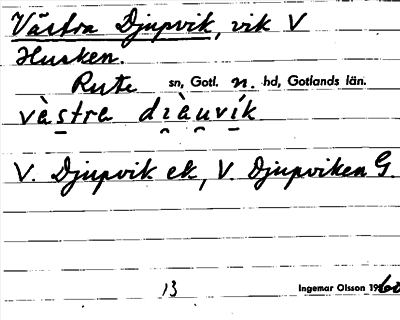 Västra Djupvik, vik V
Husken.
Rute sn, Gotl. n. hd, Gotlands län.
vàstra di̯àu̯vík
V. Djupvik ek, V. Djupviken G.
13 Ingemar Olsson 1960